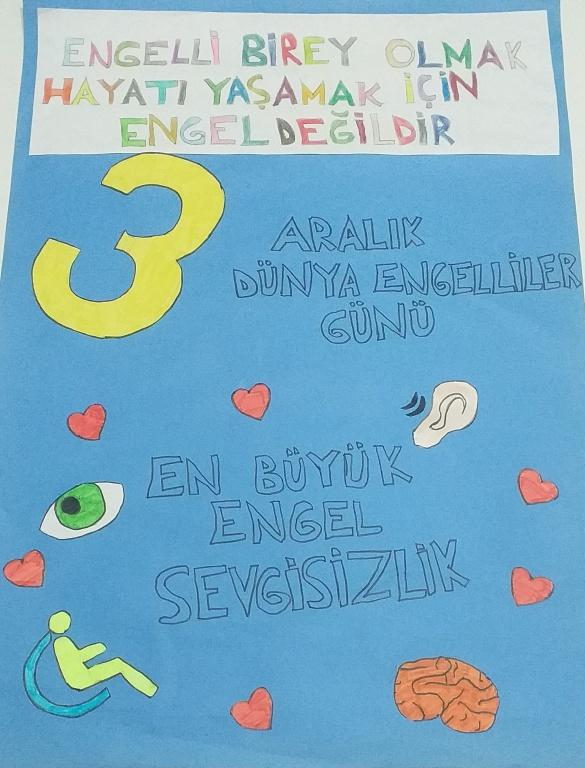 ENGELLİ BİREY OLMAK
HAYATI YAŞAMAK İÇİN
ENGEL DEĞİLDİR
3
ARALIK
DÜNYA ENGELLİLER
GÜNÜ
EN BÜYÜK
ENGEL
SEVGİSİZLİK